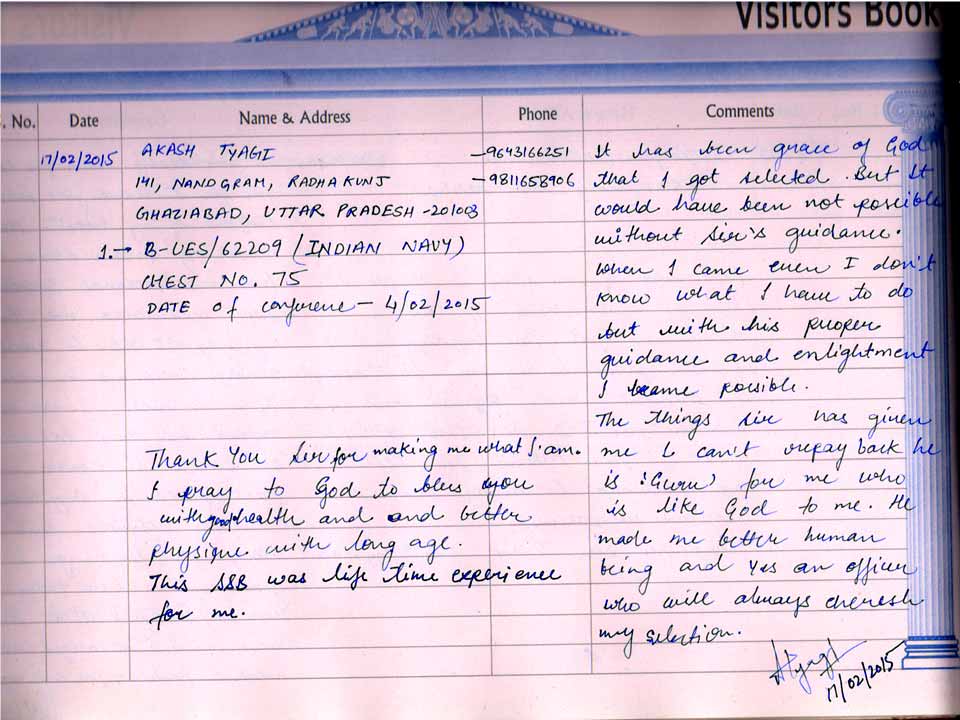 Visitors Book
S. No. Date Name & Address Phone Comments
17/02/2015 AKASH TYAGI -9643166251
141, NANDGRAM, RADHA KUNJ -9811658906
GHAZIABAD, UTTAR PRADESH -201003
1.→ B-UES/62209 (INDIAN NAVY)
CHEST NO. 75
DATE of conference - 4/02/2015
Thank You sir for making me what I am.
I pray to God to bless you
with good health and and better
physique with long age.
This SSB was life time experience
for me.
It has been grace of God
that I got selected. But it
would have been not possible
without sir's guidance.
when I came even I don't
know what I have to do
but with his proper
guidance and enlightment
I became possible.
The things sir has given
me I can't repay back he
is 'Guru' for me who
is like God to me. He
made me better human
being and Yes an officer
who will always cheresh
my selection.
17/02/2015